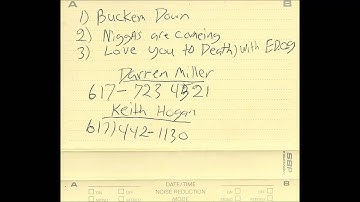 A B
1) Bucken Down
2) Niggas are comeing
3) Love you to Death) with EDOG
Darren Miller
617-723 4521
Keith Hogan
617) 442-1130
A B
DATE/TIME
NOISE REDUCTION
MODE
ON OFF ON OFF